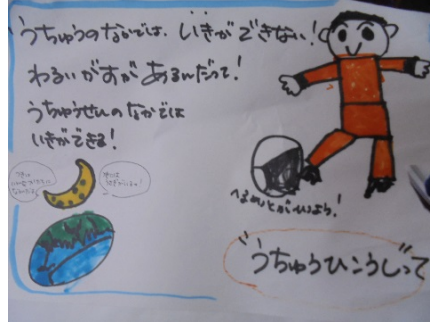 うちゅうのなかでは、いきができない!
わるいがすがあるんだって!
うちゅうせんのなかでは
いきができる!
へるめとがいいよう!
うちゅうひこうしって